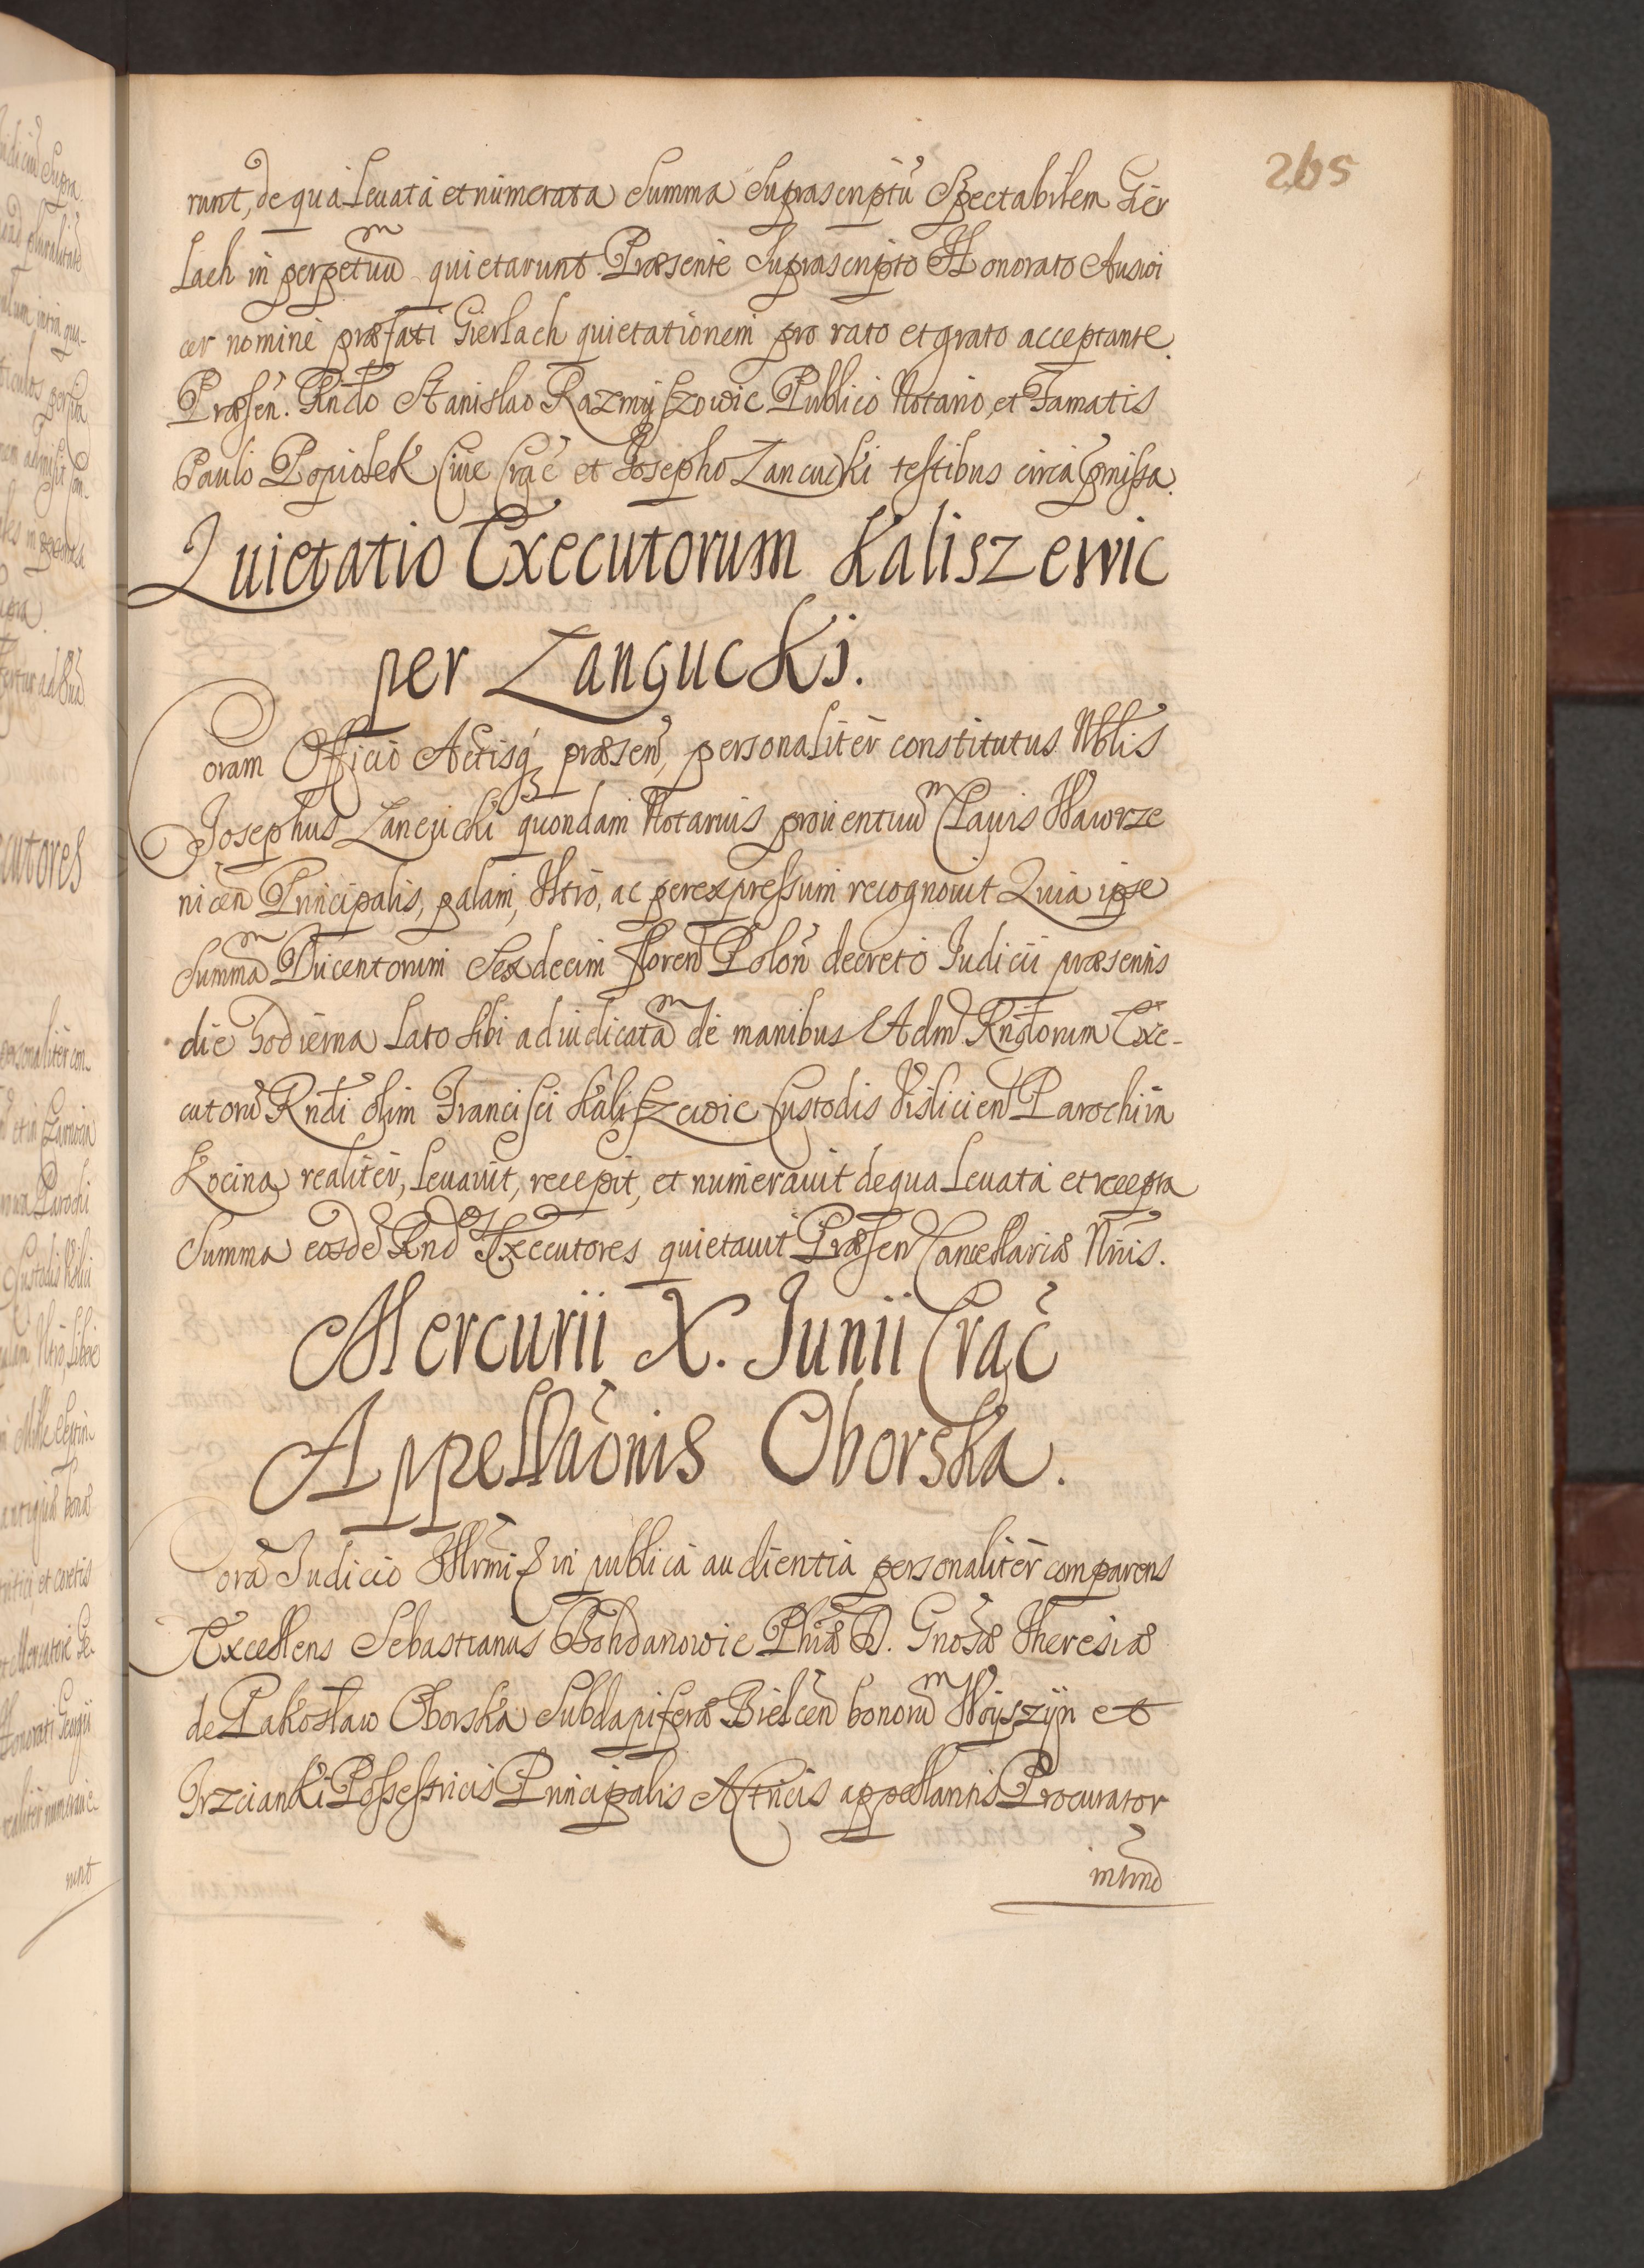 265
runt, de qua levata et numerata Summa Suprascriptũ Spectabilem Gier
lach in perpetuũm quietarunt. Præsente Suprascripto Honorato Auswi
cer nomine præfati Gierlach quietationem pro rato et grato acceptante.
Præsen. Rndo Stanislao Razmyszowic Publico Notario, et Famatis
Paulo Popiołek Cive Crac̃ et Josepho Zancucki testibus circa pmissa.
Quietatio Executorum Kaliszewic
per Zangucki.
Coram Officio Actisq3 præsen, personaliter constitutus Nblis
Josephus Zangucki quondam Notarius proventuũm Clavis Wawrze
nicen Principalis, palam, lltro, ac per expressum recognovit Quia ipse
Summãm Ducentorum Sexdecim floren Polon decreto Judicii præsentis
die hodierna lato sibi adiudicatãm de manibus Adm Rndorum Exe-
cutorũ Rndi olim Francisci Kaliszewic Custodis Vislicien Parochi in
Kocina realiter, levavit, recepit, et numeravit de qua levata et recepta
Summa eosdẽ Rndos Executores quietavit Præsen Cancellariæ Nriis.
Mercurii X. Junii Crac̃
Appellaõnis Oborska.
Corã Judicio Illrmi & in publica audientia personaliter comparens
Excellens Sebastianus Bohdanowic Phiæ D. Gnosæ Theresiæ
de Pakosław Oborska Subdapiferæ Bielcen bonorũm Woyszyn et
Trzcianki Possestricis Principalis Actricis appellantis Procurator